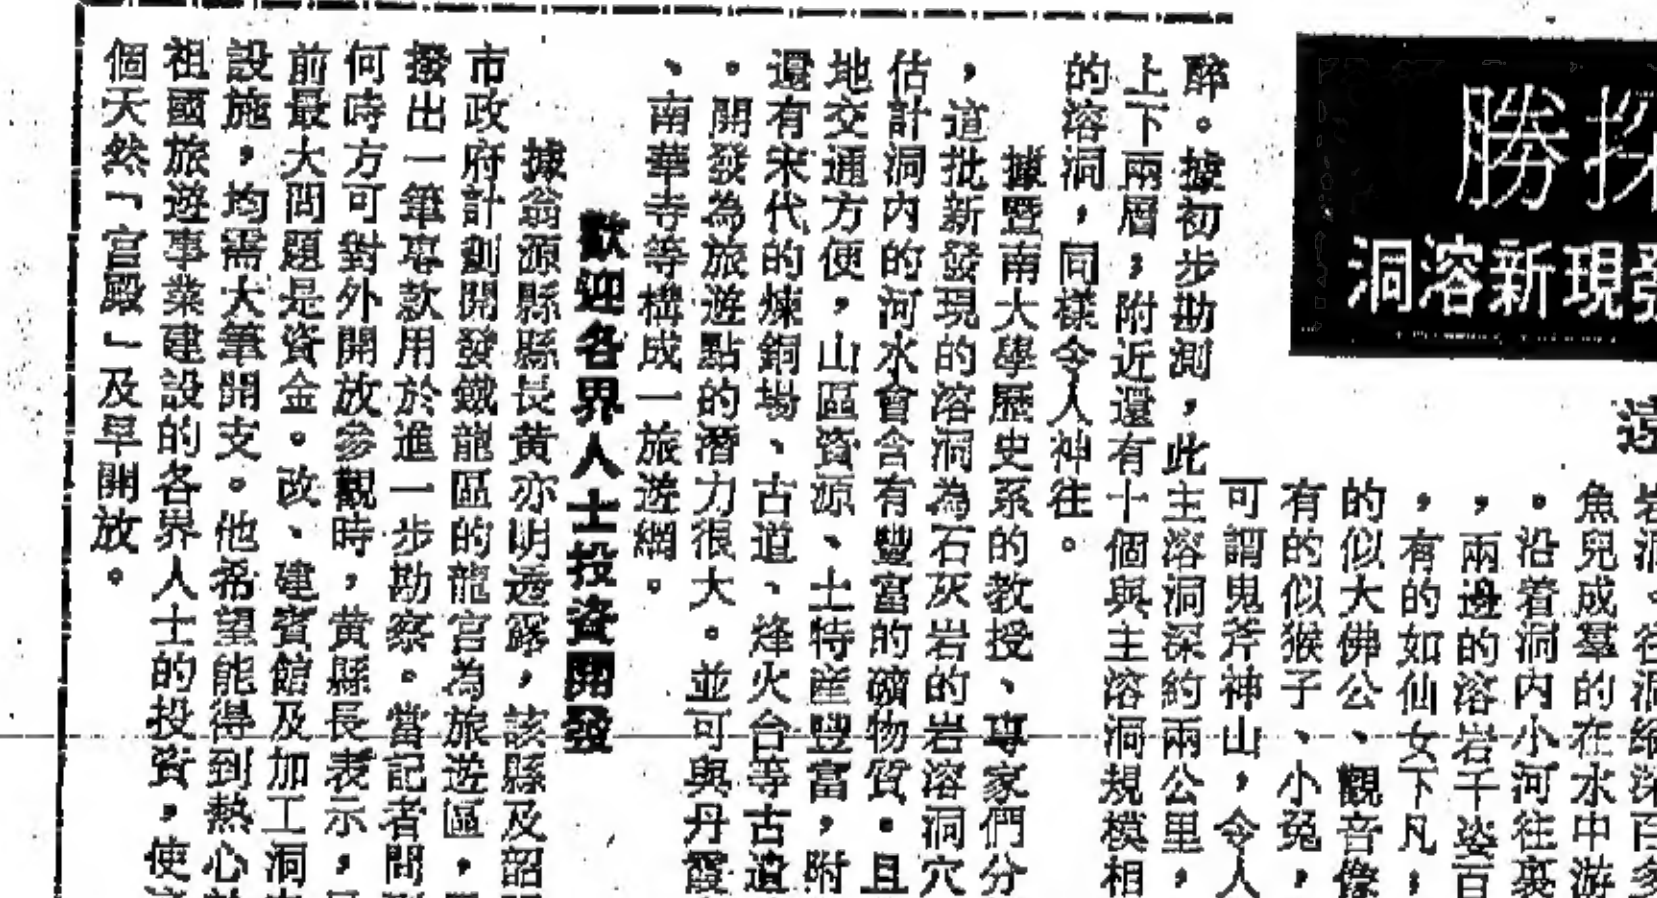 勝探
洞溶新現發
岩洞
魚兒成羣的在水中游
。沿着洞內小河往裏
，兩邊的溶岩千姿百
，有的如仙女下凡，
的似大佛公、觀音像
有的似猴子、小兔，
可謂鬼斧神山，令人
醉。據初步勘測，此主溶洞深約兩公里，
上下兩層，附近還有十個與主溶洞規模相
的溶洞，同樣令人神往。
據暨南大學歷史系的教授、專家們分
，道批新發現的溶洞為石灰岩的岩溶洞穴
估計洞內的河水會含有豐富的礦物質。且
地交通方便，山區資源、土特産豐富，附
還有宋代的煉銅場、古道、烽火台等古遺
。開發為旅遊點的潛力很大。並可與丹霞
、南華寺等構成一旅遊網。
歡迎各界人士投資開發
據翁源縣縣長黃亦明透露，該縣及韶
市政府計劃開發鐵龍區的龍宮為旅遊區，
撥出一筆專款用於進一步勘察。當記者問
何時方可對外開放參觀時，黃縣長表示，
前最大問題是資金。改、建賓館及加工洞
設施，均需大筆開支。他希望能得到熱心
祖國旅遊事業建設的各界人士的投資，使
個天然「宮殿」及早開放。